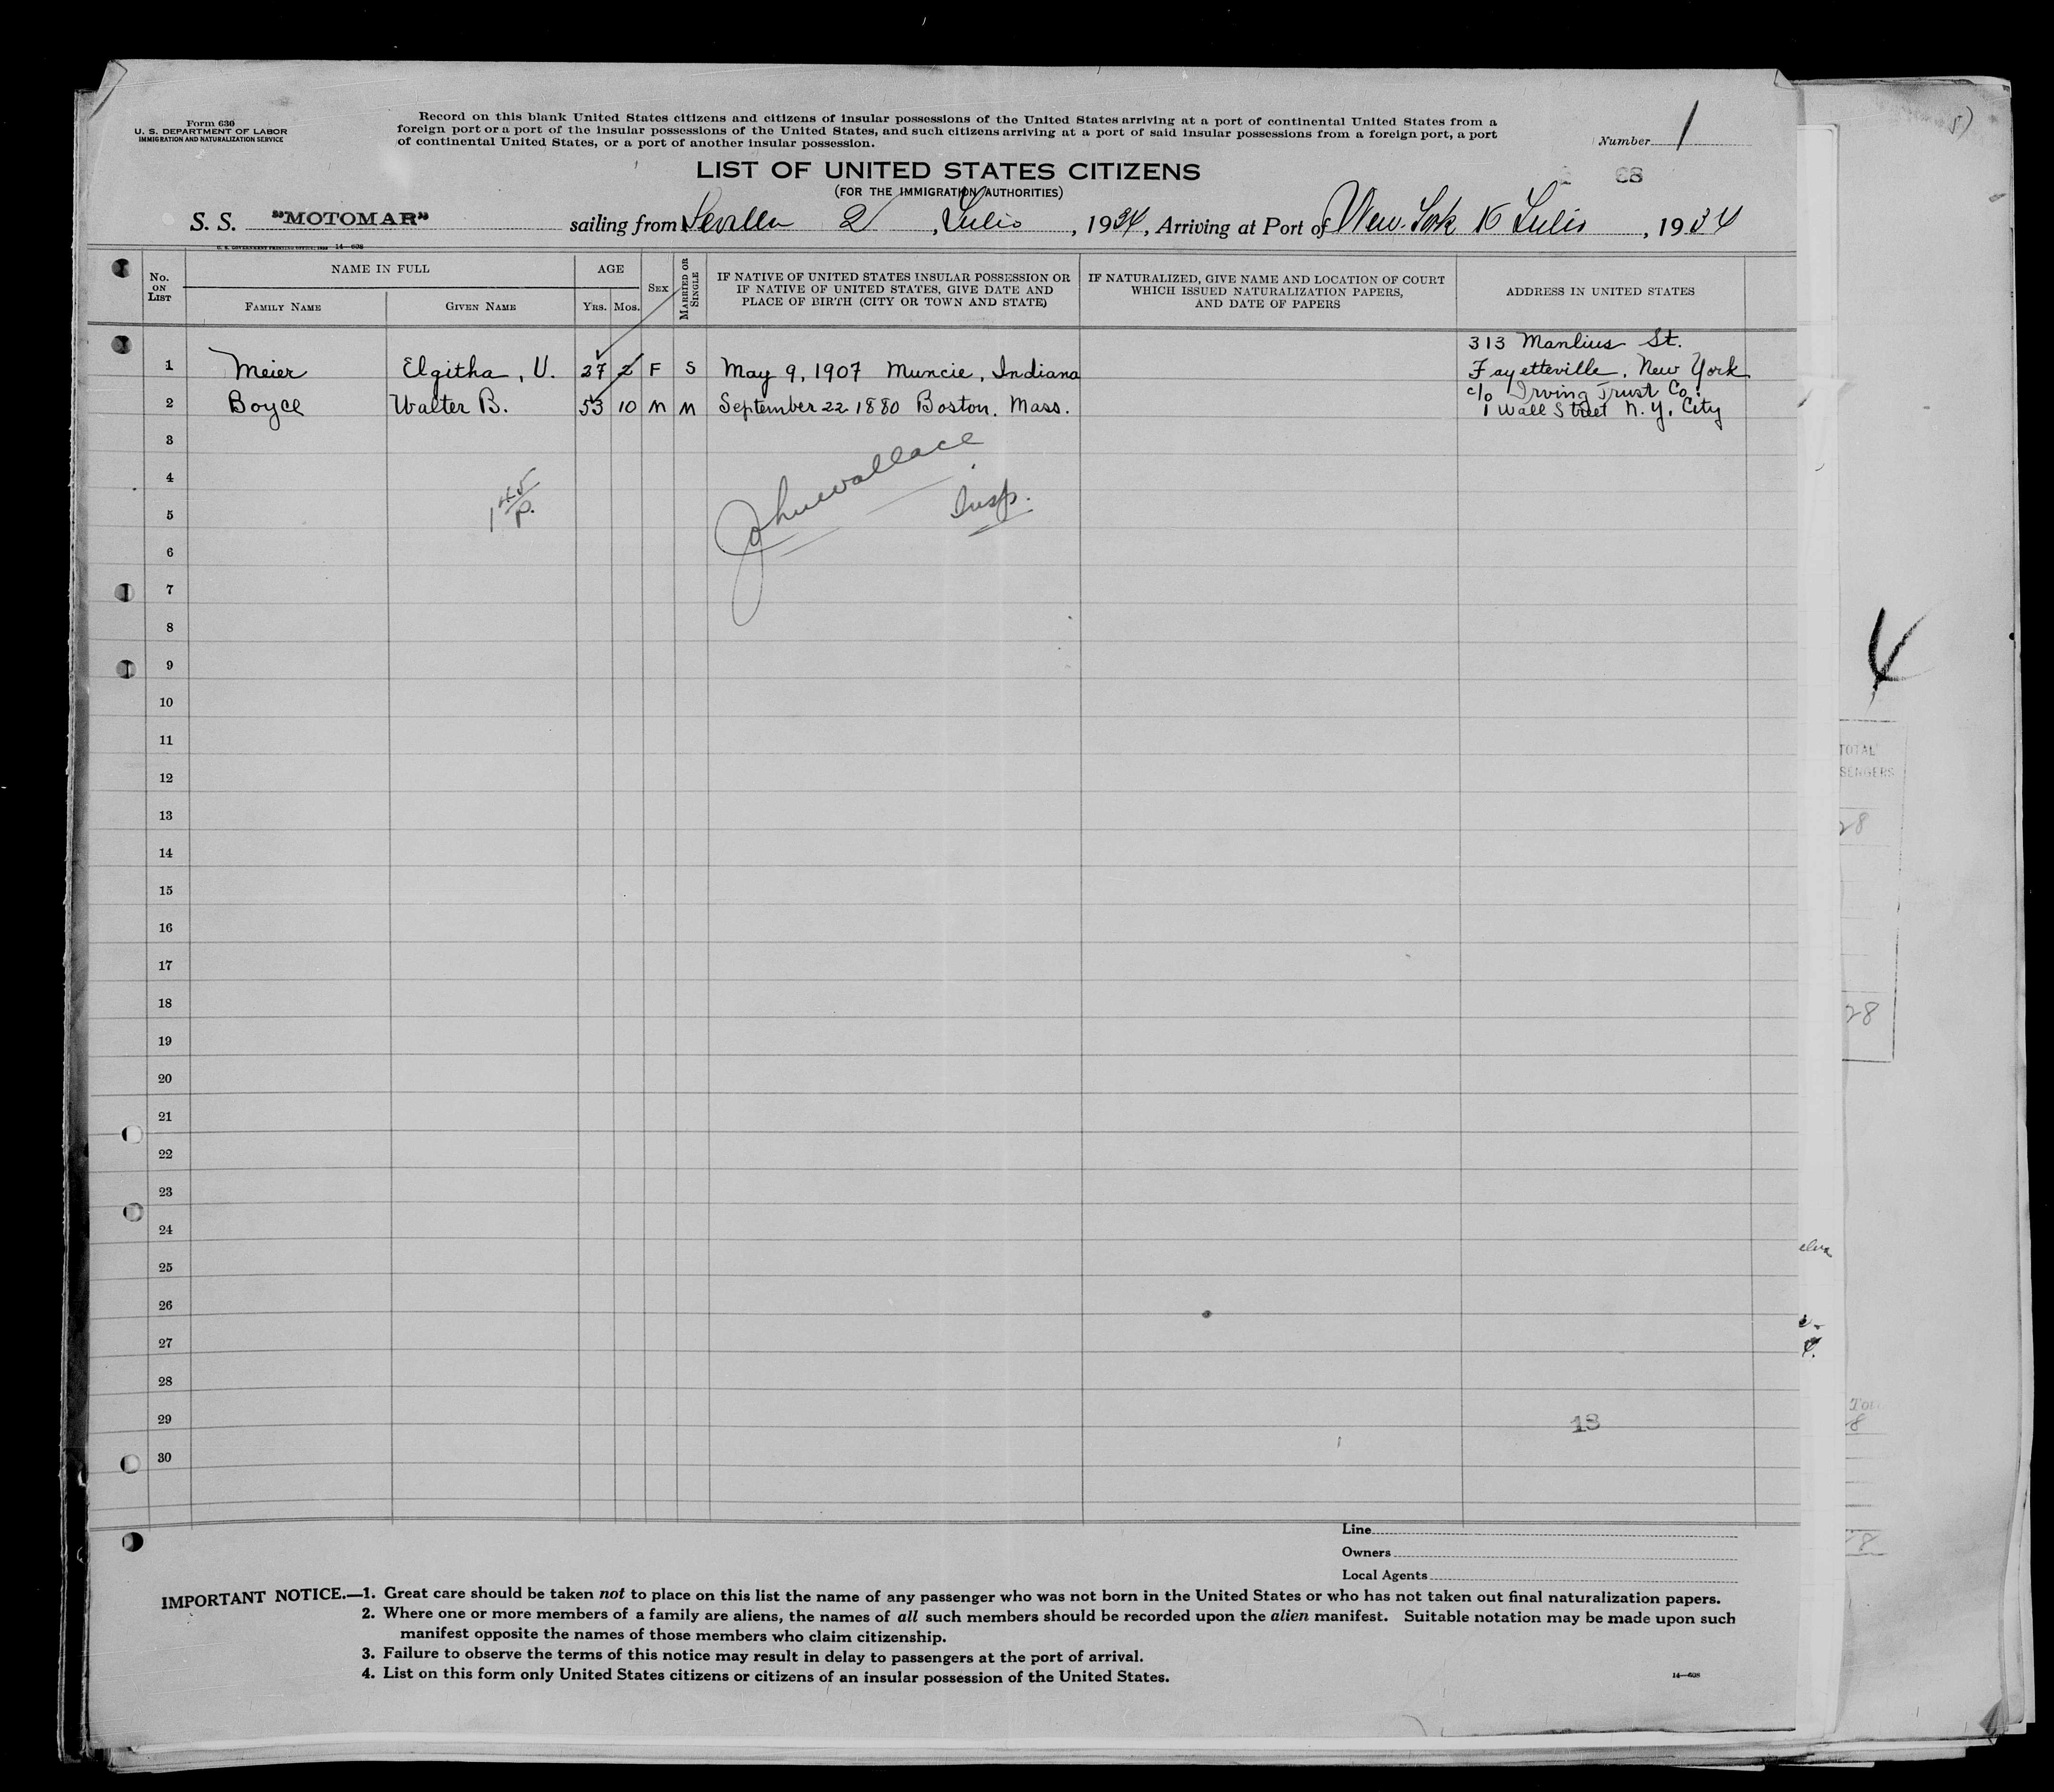 Form 630
U. S. DEPARTMENT OF LABOR
IMMIGRATION AND NATURALIZATION SERVICE
Record on this blank United States citizens and citizens of insular possessions of the United States arriving at a port of continental United States from a
foreign port or a port of the insular possessions of the United States, and such citizens arriving at a port of said insular possessions from a foreign port, a port
of continental United States, or a port of another insular possession.
Number 1
LIST OF UNITED STATES CITIZENS
(FOR THE IMMIGRATION AUTHORITIES)
S. S. "MOTOMAR" sailing from Sevilla 2, Julio, 1934, Arriving at Port of New-York 16 Julio, 1934
U. S. GOVERNMENT PRINTING OFFICE 14—608
No. ON LIST
NAME IN FULL
FAMILY NAME
GIVEN NAME
AGE
YRS.
MOS.
SEX
MARRIED OR SINGLE
IF NATIVE OF UNITED STATES INSULAR POSSESSION OR
IF NATIVE OF UNITED STATES, GIVE DATE AND
PLACE OF BIRTH (CITY OR TOWN AND STATE)
IF NATURALIZED, GIVE NAME AND LOCATION OF COURT
WHICH ISSUED NATURALIZATION PAPERS,
AND DATE OF PAPERS
ADDRESS IN UNITED STATES
313 Manlius St.
1 Meier Elgitha, V. 27 2 F S May 9, 1907 Muncie, Indiana Fayetteville, New York
c/o Irving Trust Co.
2 Boyce Walter B. 53 10 M M September 22 1880 Boston, Mass. 1 Wall Street N.Y. City
3
4
John Wallace
5
Insp.
1 45 P.
6
7
8
9
10
11
12
13
14
15
16
17
18
19
20
21
22
23
24
25
26
27
28
29
18
30
Line
Owners
Local Agents
IMPORTANT NOTICE.—1. Great care should be taken not to place on this list the name of any passenger who was not born in the United States or who has not taken out final naturalization papers.
2. Where one or more members of a family are aliens, the names of all such members should be recorded upon the alien manifest. Suitable notation may be made upon such
manifest opposite the names of those members who claim citizenship.
3. Failure to observe the terms of this notice may result in delay to passengers at the port of arrival.
4. List on this form only United States citizens or citizens of an insular possession of the United States.
14—608
TOTAL
28
28